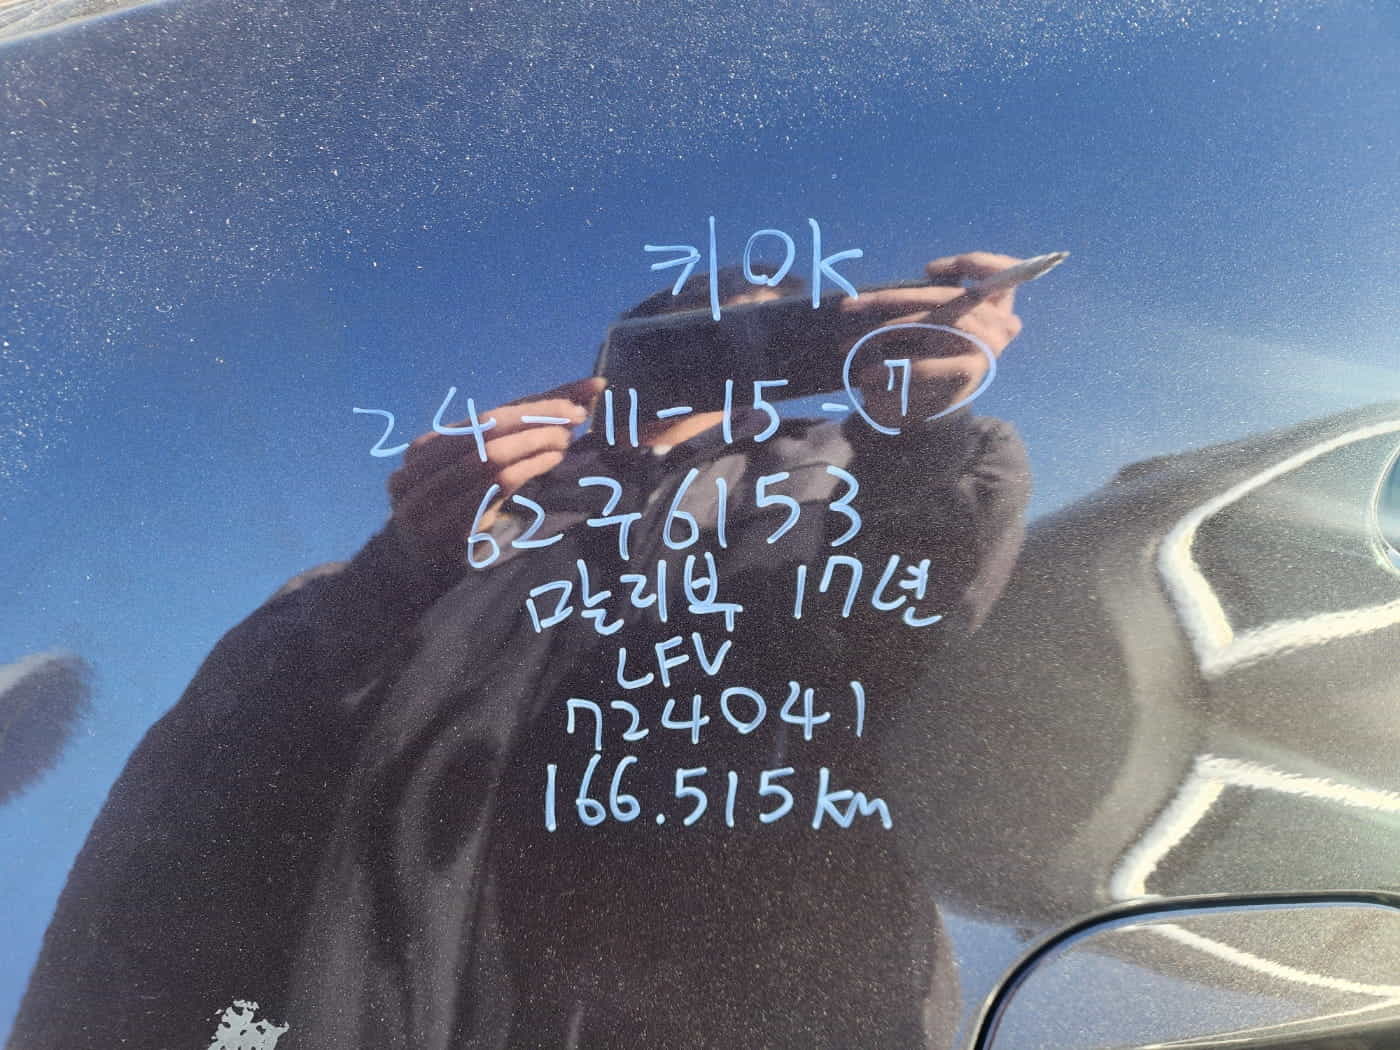 키OK
24-11-15-⑦
62구6153
말리북 17년
LFV
724041
166.515km